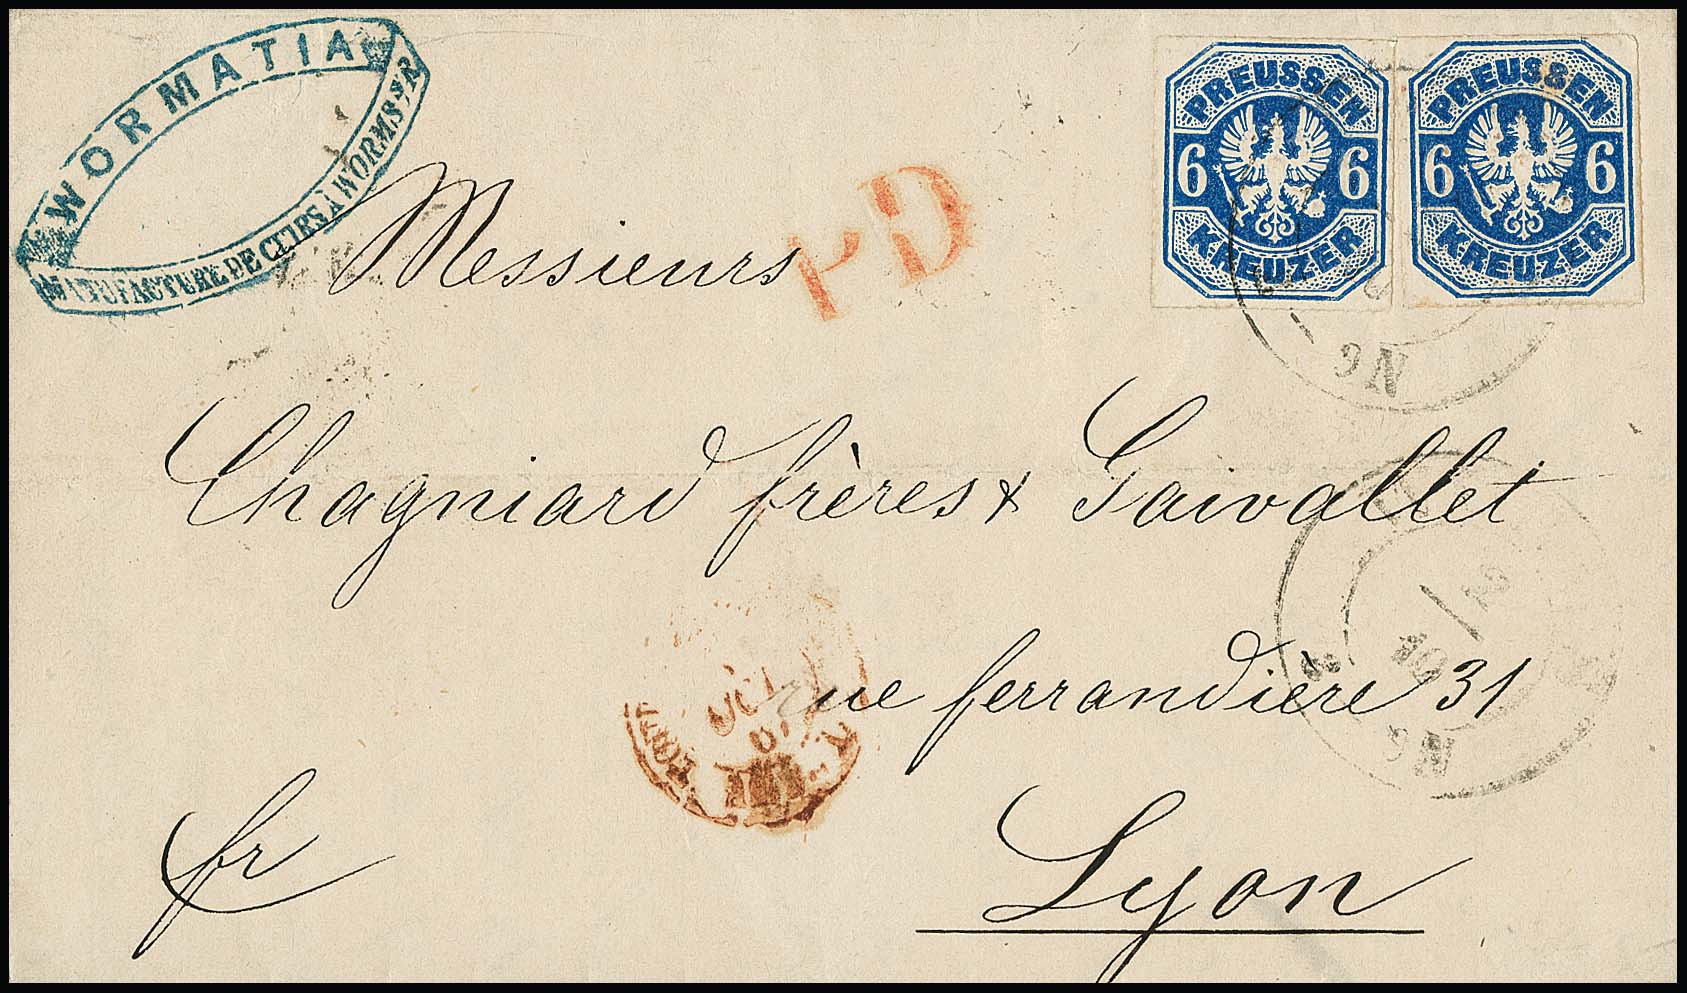 WORMATIA
MANUFACTURE DE CUIRS À WORMS S/R
PREUSSEN
6 6
KREUZER
PREUSSEN
6 6
KREUZER
PD
Messieurs
Chagniard frères & Gaivallet
rue ferrandière 31
Lyon
fr